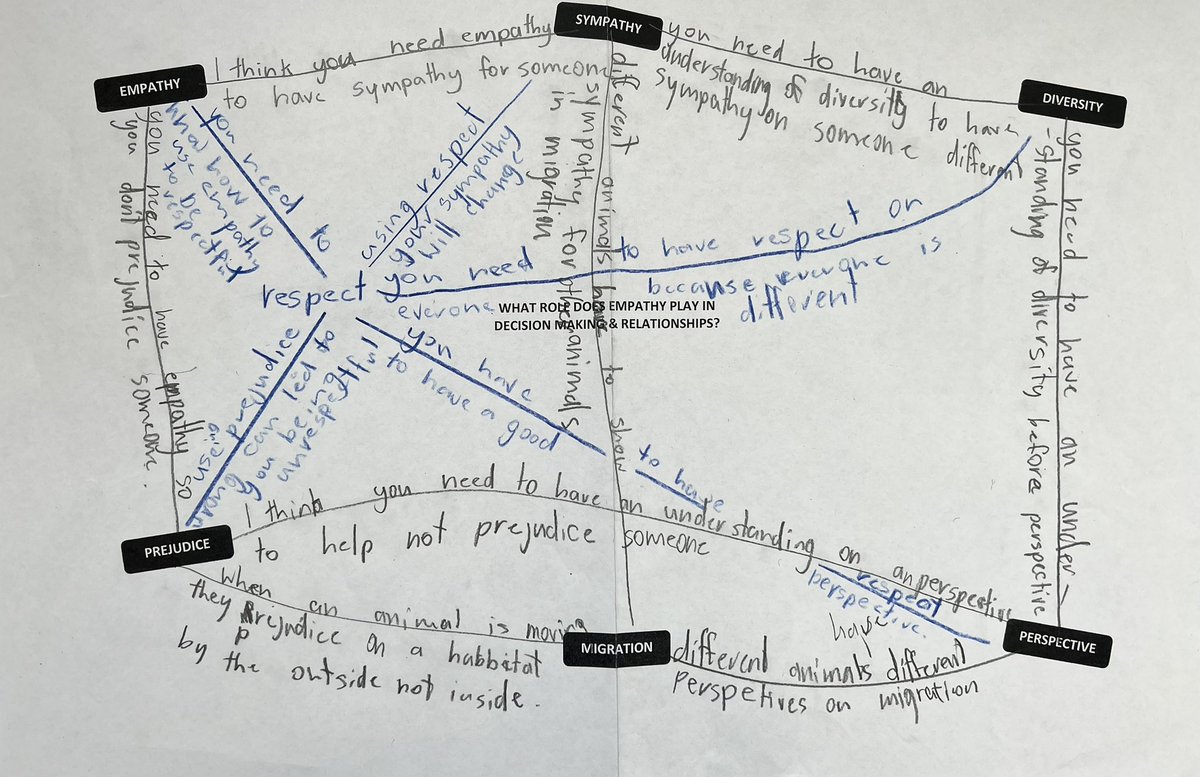 SYMPATHY
EMPATHY
DIVERSITY
I think you need empathy
to have sympathy for someone
you need to have an
understanding of diversity to have
sympathy on someone different
you need to
use empathy
to be
respectful
using respect
your sympathy
will change
different animals have to show
sympathy for other animals
is migration
you need to have an under-
-standing of diversity before perspective
you need to have empathy so
you dont prejudice someone.
respect
you need to have respect on
everione because everyone is
different
WHAT ROLE DOES EMPATHY PLAY IN
DECISION MAKING & RELATIONSHIPS?
use prejudice
wrong can led to
you being
unrespeftful
you have to have
to have a good
respect
perspective.
I think you need to have an understanding on an perspective
to help not prejudice someone
PREJUDICE
when an animal is moving
they prejudice on a habbitat
by the outside not inside.
MIGRATION
PERSPECTIVE
different animals have different
perspetives on migration